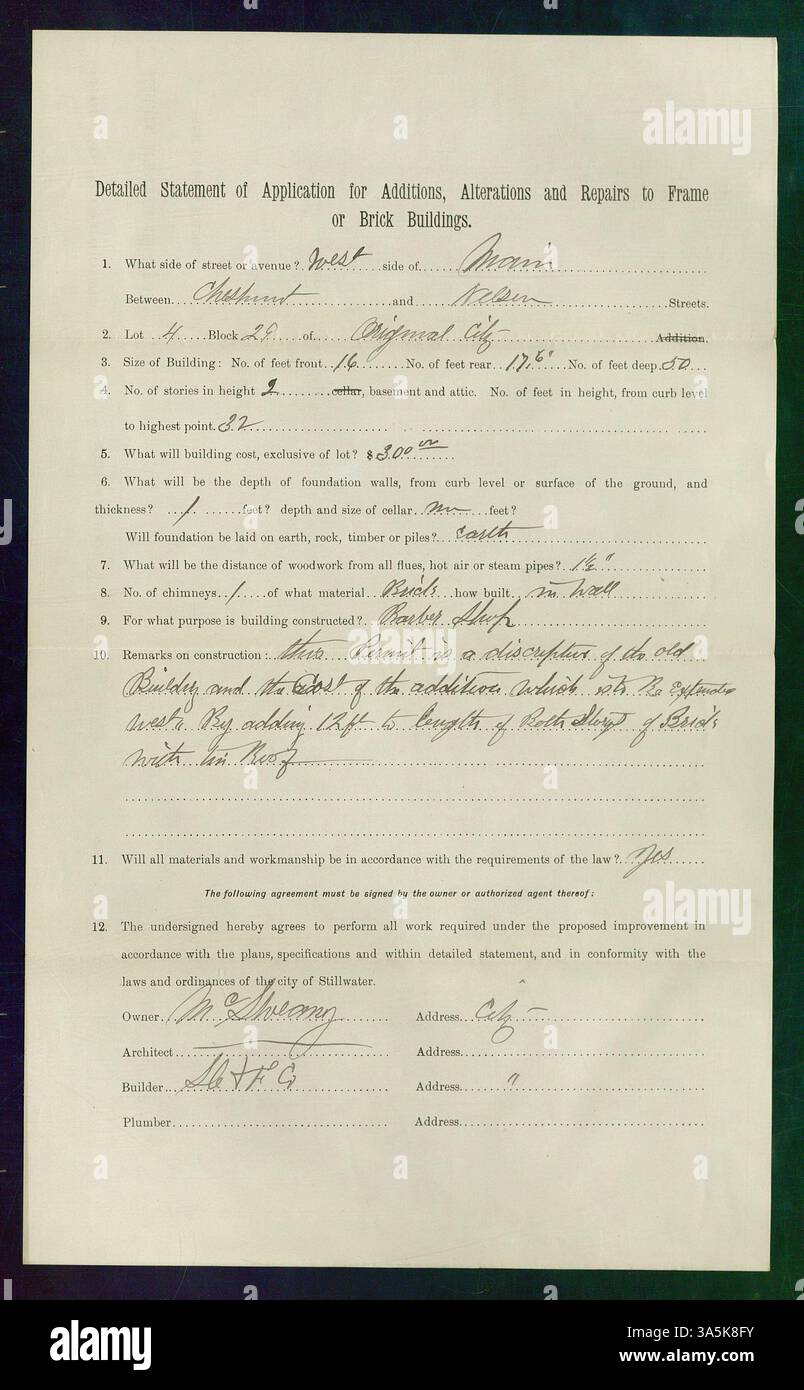 Detailed Statement of Application for Additions, Alterations and Repairs to Frame
or Brick Buildings.
1. What side of street or avenue? West side of Main
Between Chestnut and Nelson Streets.
2. Lot 4 Block 29 of Original City Addition.
3. Size of Building: No. of feet front 16 No. of feet rear 17.6" No. of feet deep 50
4. No. of stories in height 2 cellar, basement and attic. No. of feet in height, from curb level
to highest point. 32
5. What will building cost, exclusive of lot? $300 00
6. What will be the depth of foundation walls, from curb level or surface of the ground, and
thickness? 1 feet? depth and size of cellar feet?
Will foundation be laid on earth, rock, timber or piles? earth
7. What will be the distance of woodwork from all flues, hot air or steam pipes? 1½"
8. No. of chimneys 1 of what material Brick how built in wall
9. For what purpose is building constructed? Barber Shop
10. Remarks on construction: this Permit is a of the old
Building and the Cost of the addition which is to be Extended
west By adding 12 ft to length of Both Storys of Brick
with tin Roof
11. Will all materials and workmanship be in accordance with the requirements of the law? Yes
The following agreement must be signed by the owner or authorized agent thereof:
12. The undersigned hereby agrees to perform all work required under the proposed improvement in
accordance with the plans, specifications and within detailed statement, and in conformity with the
laws and ordinances of the city of Stillwater.
Owner Address City
Architect Address
Builder Address "
Plumber Address
alamy
Image ID: 3A5K8FY
www.alamy.com